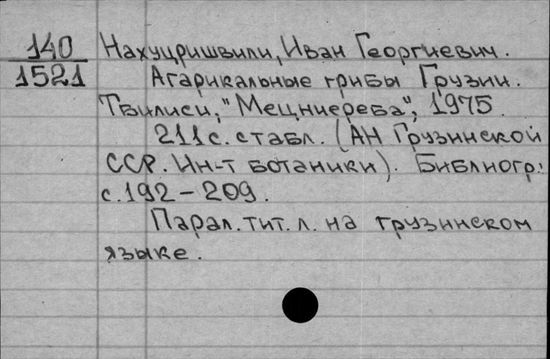 140 Нахуцришвили, Иван Георгиевич.
1521 Агарикальные грибы Грузии.
Тбилиси, "Мецниереба", 1975.
211с. стабл. (АН Грузинской
ССР. Ин-т ботаники). Библиогр.:
с.192-209.
Парал. тит. л. на грузинском
языке.